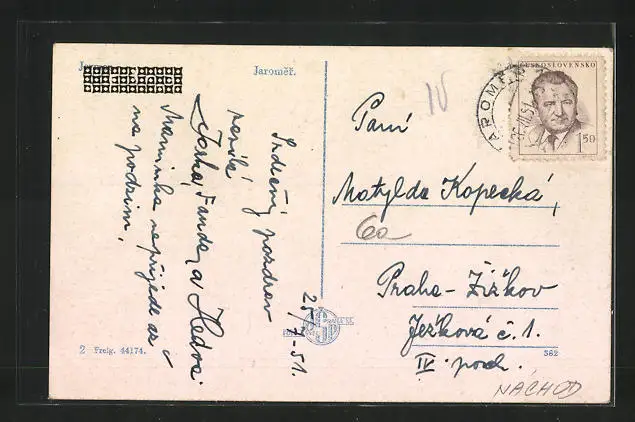 Jaroměř.
Srdečný pozdrav
zasílá
Jarka, Fanda a Hedva.
Maminka nepřijede až
na podzim.
25/7-51.
2 Frelg. 44174.
IV
ČESKOSLOVENSKO
1.50
JAROMĚŘ
Paní
Matylda Kopecká,
6a
Praha-Žižkov
Ježková č. 1.
IV. posch.
362
NÁCHOD